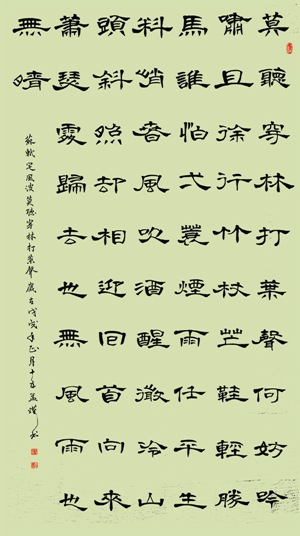 莫聽穿林打葉聲何妨吟
嘯且徐行竹杖芒鞋輕勝
馬誰怕弌蓑煙雨任平生
料峭春風吹酒醒微冷山
頭斜照却相迎回首向來
蕭瑟處歸去也無風雨也
無晴
蘇軾定風波莫聽穿林打葉聲歲在戊戌年正月十